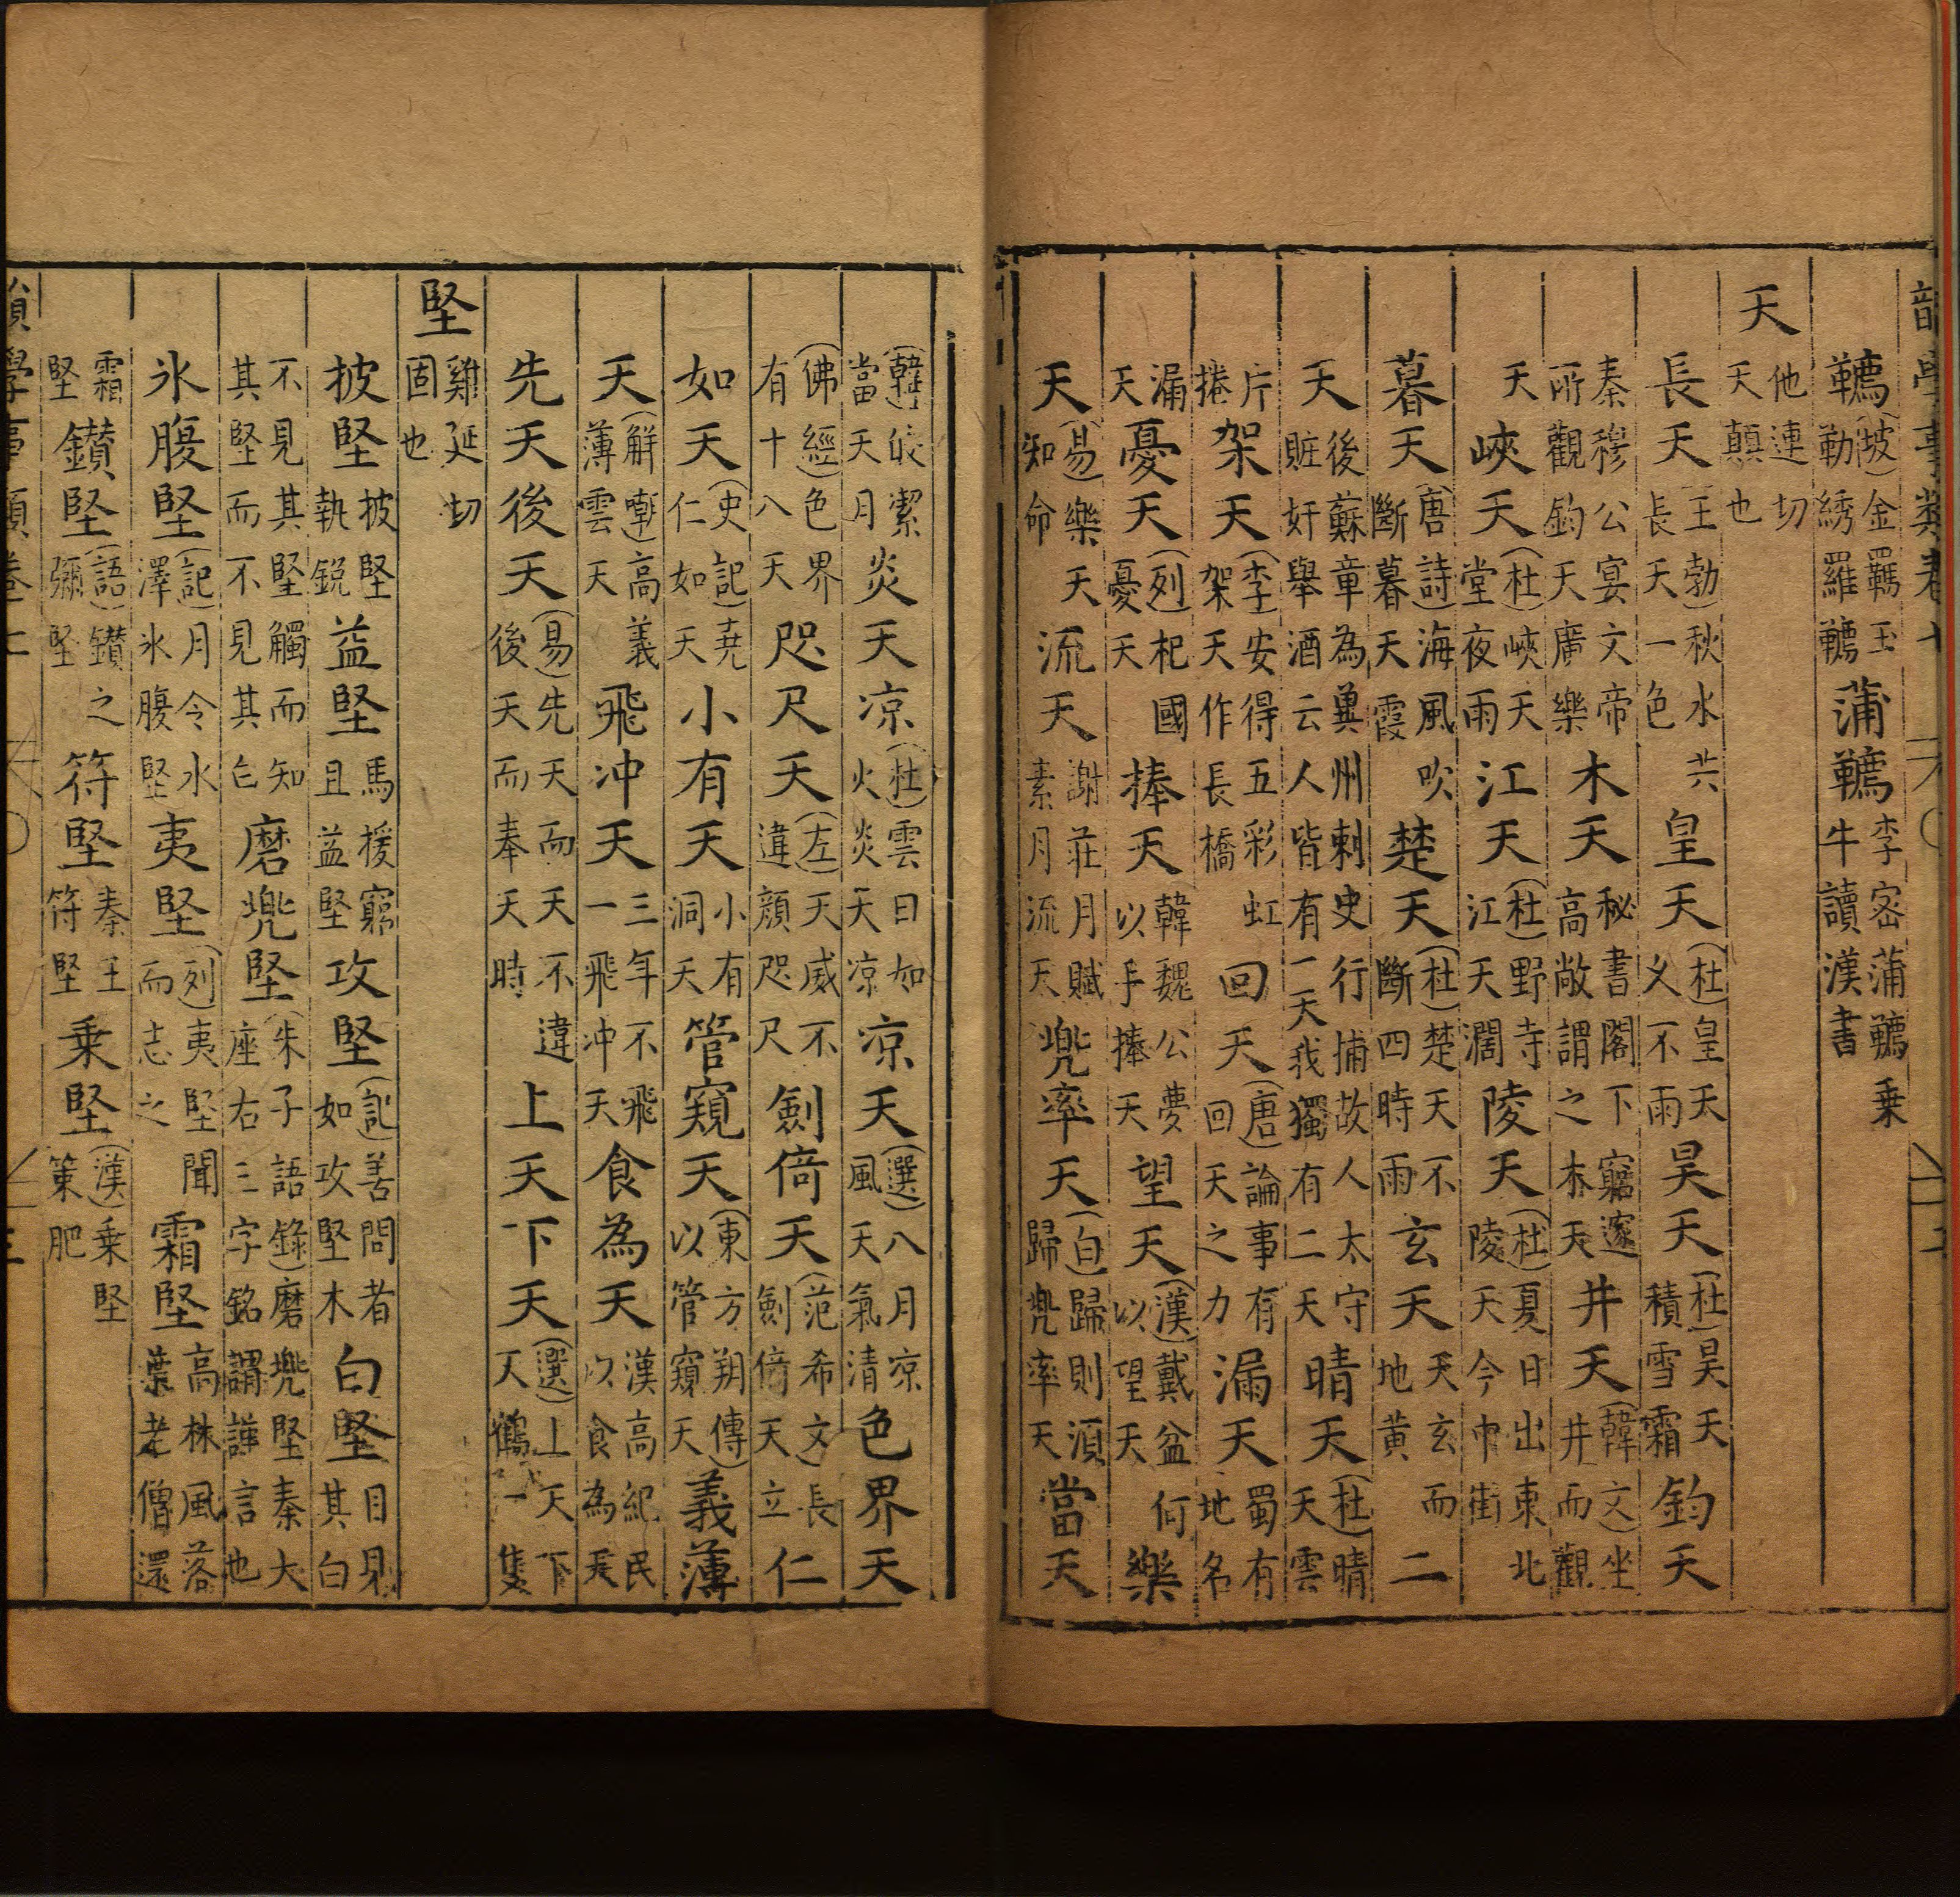 韻學事類卷十
韉(坡)金羈玉勒綉羅韉 蒲韉李密蒲韉乗牛讀漢書
天他連切天顛也
長天王勃秋水共長天一色 皇天(杜)皇天乂不雨 昊天(杜)昊天積雪霜 鈞天
秦穆公宴文帝所觀鈞天廣樂 木天秘書閣下窮邃高敞謂之木天 井天(韓文)坐井而觀
天 峽天(杜)峽天堂夜雨 江天(杜)野寺江天濶 陵天(杜)夏日出東北陵天今中街
暮天(唐詩)海風吹斷暮天霞 楚天(杜)楚天不斷四時雨 玄天天玄而地黄 二
天後蘇章為冀州刺史行捕故人太守賍奸舉酒云人皆有一天我獨有二天 晴天(杜)晴天雲
片捲 架天(李)安得五彩虹架天作長橋 回天(唐)論事有回天之力 漏天蜀有地名
漏天 憂天(列)杞國憂天 捧天韓魏公夢以手捧天 望天(漢)戴盆何以望天 樂
天(易)樂天知命 流天謝莊月賦素月流天 兠率天(白)歸則湏歸兠率天 當天
(韓)皎潔當天月 炎天凉(杜)雲日如火炎天凉 凉天(選)八月凉風天氣清 色界天
(佛經)色界有十八天 咫尺天(左)天威不違顔咫尺 劍倚天(范希文)長劍倚天立 仁
如天(史記)堯仁如天 小有天小有洞天 管窺天(東方朔傳)以管窺天 義薄
天(解嘲)高義薄雲天 飛冲天三年不飛一飛冲天 食為天漢高紀民以食為天
先天後天(易)先天而天不違後天而奉天時 上天下天(選)上天下天鶴一隻
堅雞延切固也
披堅披堅執銳 益堅馬援窮且益堅 攻堅(記)善問者如攻堅木 白堅目見其白
不見其堅觸而知其堅而不見其白 磨兠堅(朱子語錄)磨兠堅秦大座右三字銘謂謹言也
氷腹堅(記)月令水澤氷腹堅 夷堅(列)夷堅聞而志之 霜堅高株風落葉老僧還
霜堅 鑚堅(語)鑚之彌堅 符堅秦王符堅 乗堅(漢)乗堅策肥
韻學事類卷十